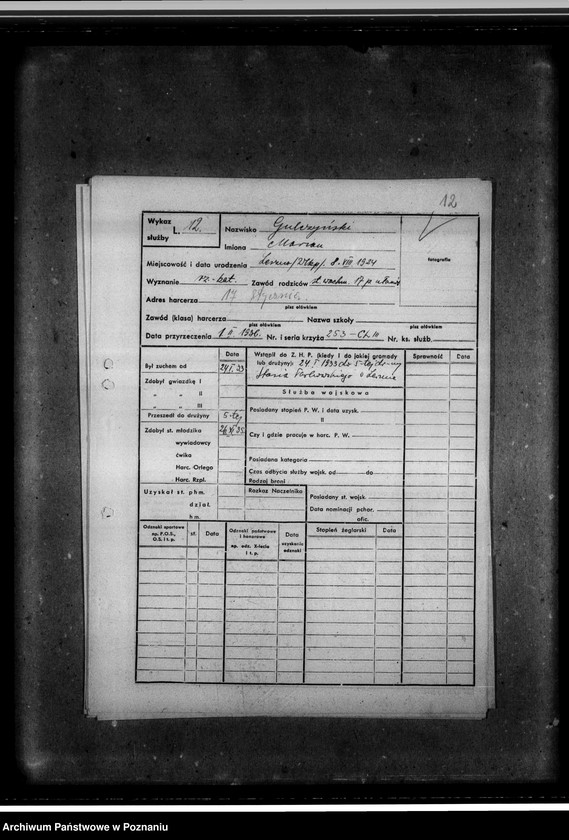 12
Wykaz L. 12.
służby
Nazwisko Gulczyński
Imiona Marian
fotografia
Miejscowość i data urodzenia Leszno/Wlkp/. 8. VIII 1924
Wyznanie rz.-kat. Zawód rodziców st. wachm. 17 p. ułanów
Adres harcerza 17 Stycznia
pisz ołówkiem
Zawód (klasa) harcerza Nazwa szkoły
pisz ołówkiem pisz ołówkiem
Data przyrzeczenia 1. II 1936. Nr. i seria krzyża 253 - Nr. ks. służb.
Data
Był zuchem od 24 I. 33
Zdobył gwiazdkę I
" " II
" " III
Przeszedł do drużyny 5-tej
Zdobył st. młodzika 26 XI 35
wywiadowcy
ćwika
Harc. Orlego
Harc. Rzpl.
Uzyskał st. phm.
dział.
hm.
Wstąpił do Z. H. P. (kiedy i do jakiej gromady
lub drużyny) 24. I 1933 do 5-tej
w Lesznie
Służba wojskowa
Posiadany stopień P. W. i data uzysk.
II
Czy i gdzie pracuje w harc. P. W.
Posiadana kategoria
Czas odbycia służby wojsk. od do
Rodzaj broni
Rozkaz Naczelnika
Posiadany st. wojsk
Data nominacji pchor.
ofic.
Sprawność Data
Odznaki sportowe
np. P.O.S.,
O.S. i t. p.
st. Data
Odznaki państwowe
i honorowe
np. odz. X-lecia
i t. p.
Data
uzyskania
odznaki
Stopień żeglarski Data
Archiwum Państwowe w Poznaniu